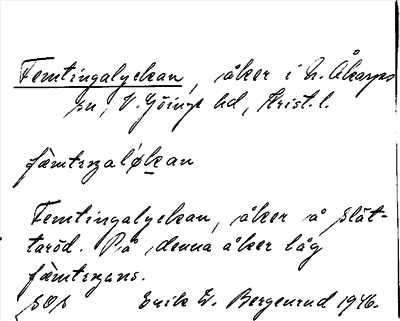 Femtingalyckan, åker i N. Åkarps
sn, V. Göinge hd, Krist. l.
fämtıŋaløkan
Femtingalyckan, åker å Slät-
taröd. På denna åker låg
fämtıŋens.
Erik W. Bergenrud 1946.